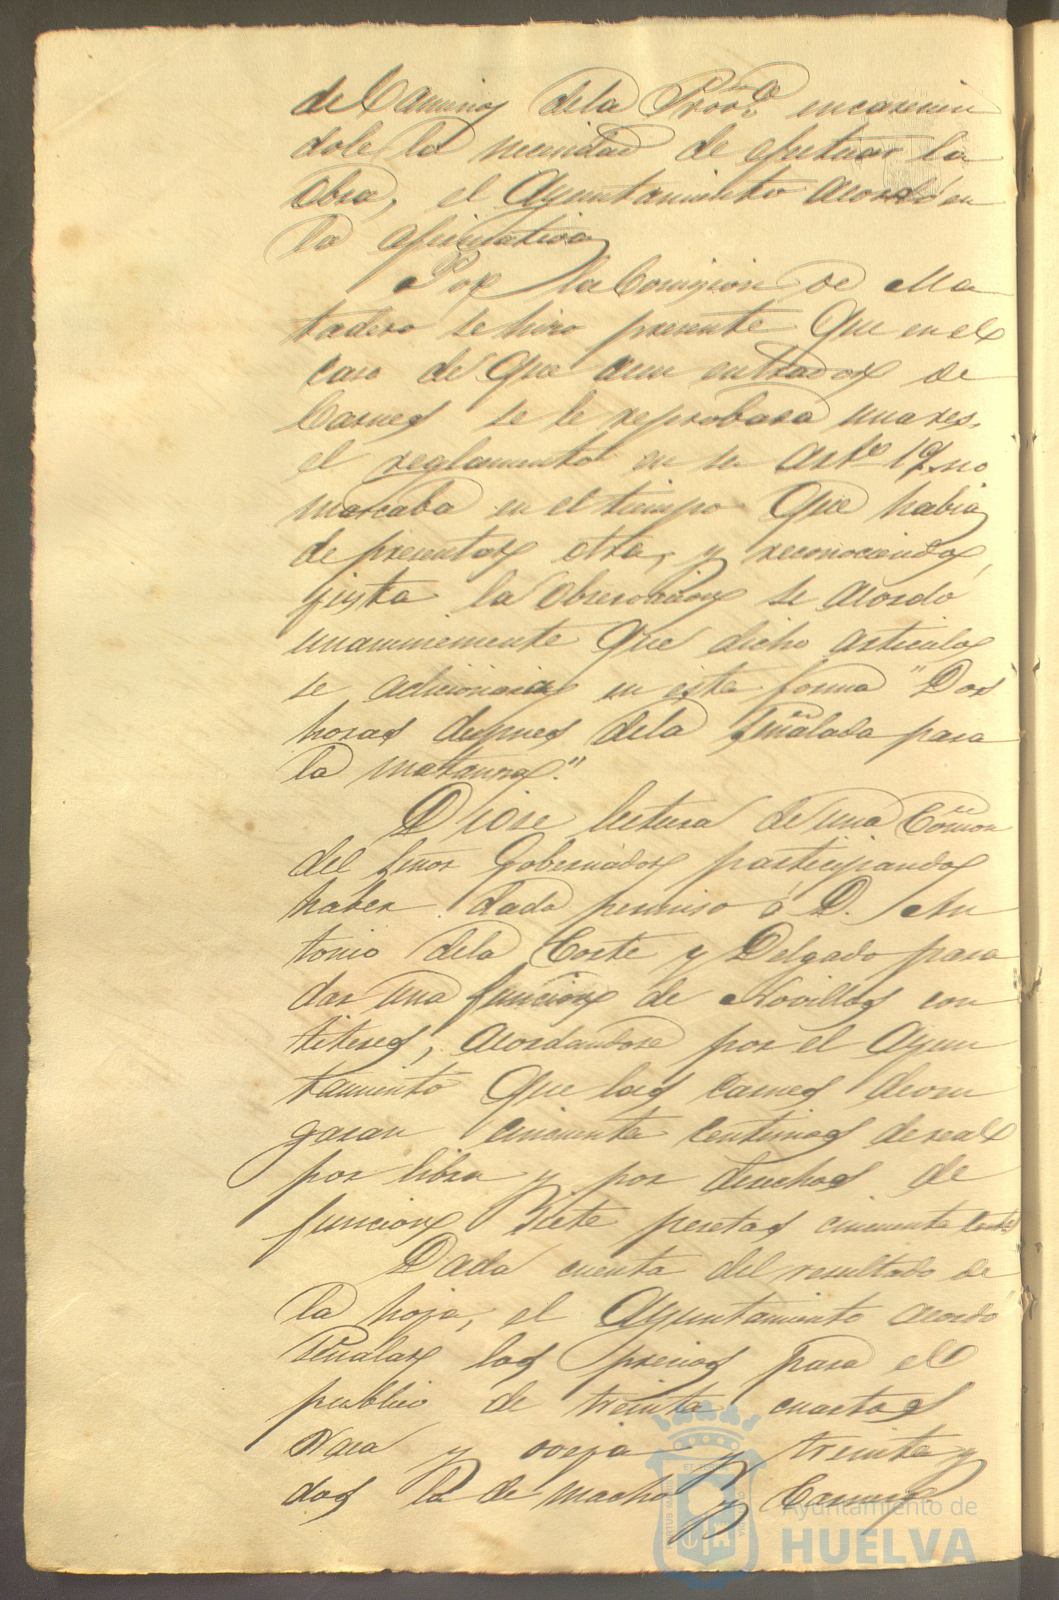 de Caminos de la Provª encarecien
dole la necesidad de efectuar la
obra, el Ayuntamiento acordó en
la afirmativa
Por la Comision de Ma
tadero se hizo presente que en el
caso de que a un entrador de
Carnes se le reprobara una res,
el reglamento en su artº 19 no
marcaba en el tiempo que habia
de presentar otra, y reconociendo
justa la observacion se acordó
unanimemente que dicho articulo
se adicionara en esta forma "Dos
horas despues de la señalada para
la matanza."
Diose lectura de una Comon
del Señor Gobernador participando
haber dado permiso á D. An
tonio de la Corte y Delgado para
dar una funcion de Novillos con
titeres, acordandose por el Ayun
tamiento que las carnes deven
garan cincuenta centimos de real
por libra y por derechos de
funcion siete pesetas cincuenta cents
Dada cuenta del resultado de
la hoja, el Ayuntamiento acordó
señalar los precios para el
publico de treinta cuartos
vaca y oveja y treinta y
dos la de macho y Carnero
Ayuntamiento de
HUELVA